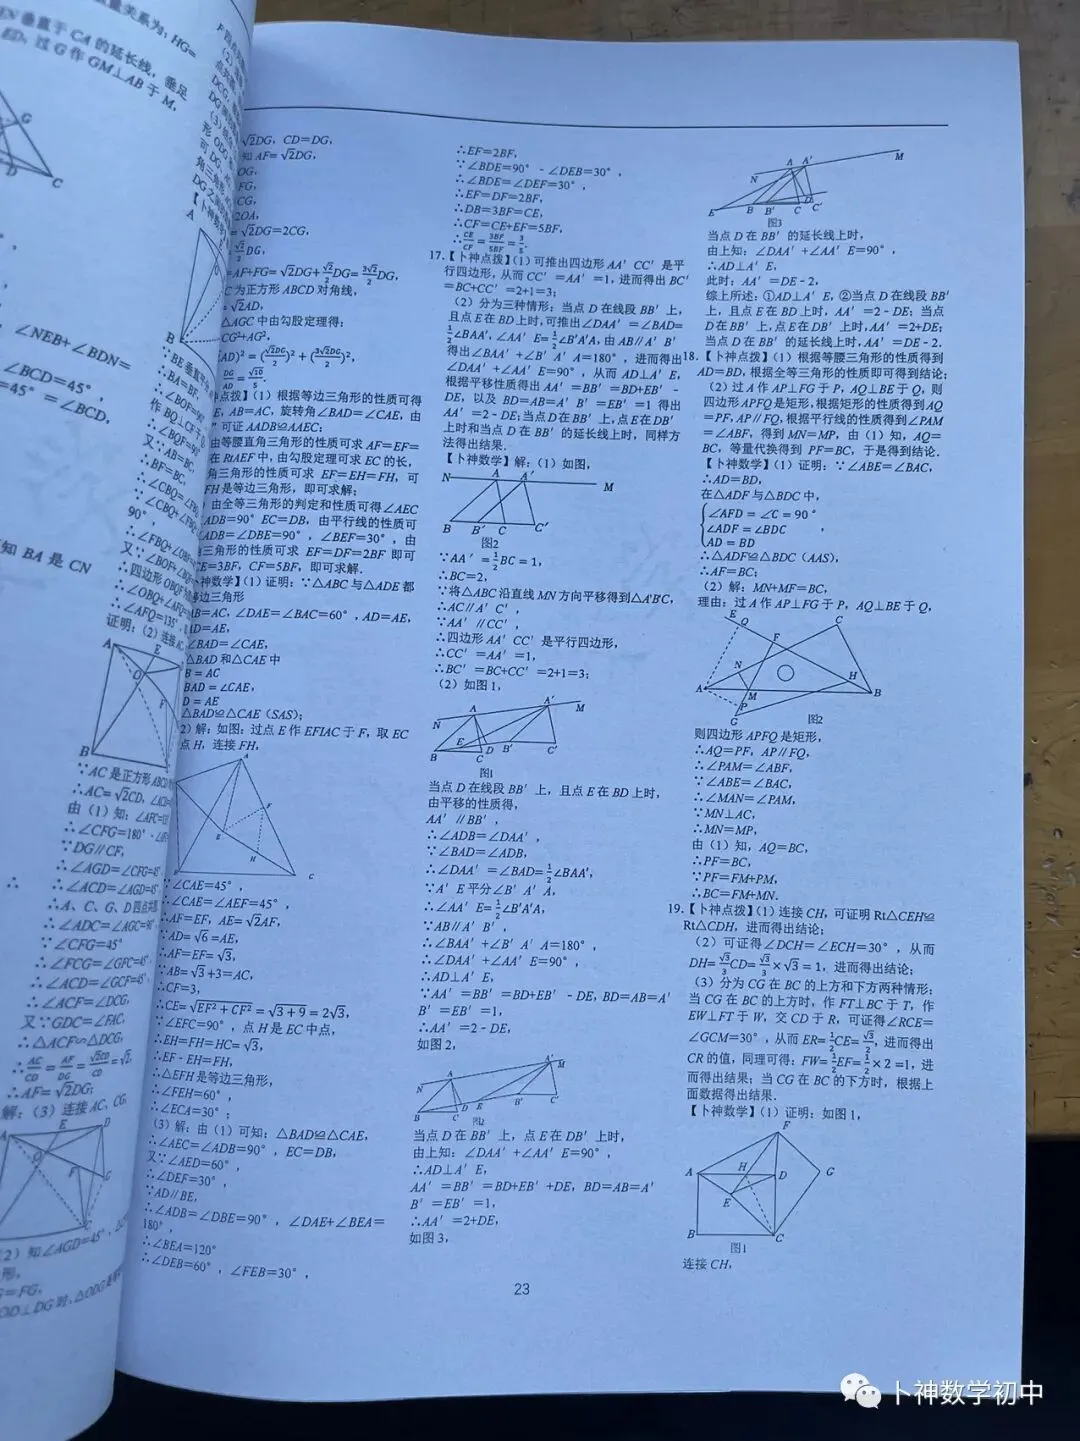 量关系为: HG=
EN 垂直于 CA 的延长线, 垂足
ED, 过 G 作 GM⊥AB 于 M,
G
D
C
, ∠NEB+∠BDN=
∠BCD=45°,
=45° =∠BCD,
知 BA 是 CN
∵BE 垂直平分
∴BA=BF,
∴∠BOF=90°
作 BQ⊥CF于Q
∴∠BQF=90°
又∵AB=BC,
∴BF=BC,
90°,
证明: (2) 连接
∵AC 是正方形 ABCD
∴AC=√2CD,
由 (1) 知:
∴∠CFG=180°
∵DG∥CF,
∴∠AGD=∠CFG=45°
∴∠ACD=∠AGD=45°
∴A、C、G、D 四点共圆
∴∠ADC=∠AGC=90°
∵∠CFG=45°
∴∠FCG=∠GFC=45°
∴∠ACD=∠GCF=45°
∴∠ACF=∠DCG,
又∵∠GDC=∠FAC,
∴△ACF∽△DCG,
∴AC/CD=AF/DG=√2CD/CD=√2,
∴AF=√2DG;
解: (3) 连接 AC, CG,
(2) 知∠AGD=45°
形,
=FG,
OD⊥DG 时,
√2DG, CD=DG,
知 AF=√2DG,
OG,
FG,
CG,
2OA,
=√2DG=2CG,
√2/2DG,
=AF+FG=√2DG+√2/2DG=3√2/2DG,
C 为正方形 ABCD 对角线,
=√2AD,
△AGC 中由勾股定理得:
CG²+AG²,
AD)²=(√2DG/2)²+(3√2DG/2)²,
DG/AD=√10/5.
点拨】(1) 根据等边三角形的性质可得
E, AB=AC, 旋转角∠BAD=∠CAE, 由
”可证 AADB≌AAEC;
由等腰直角三角形的性质可求 AF=EF=
在 RtAEF 中, 由勾股定理可求 EC 的长,
角三角形的性质可求 EF=EH=FH, 可
FH 是等边三角形, 即可求解;
由全等三角形的判定和性质可得∠AEC
ADB=90° EC=DB, 由平行线的性质可
ADB=∠DBE=90°, ∠BEF=30°, 由
三角形的性质可求 EF=DF=2BF 即可
CE=3BF, CF=5BF, 即可求解.
卜神数学】(1) 证明: ∵△ABC 与△ADE 都
等边三角形
AB=AC, ∠DAE=∠BAC=60°, AD=AE,
AD=AE,
∠BAD=∠CAE,
△BAD 和△CAE 中
B = AC
BAD = ∠CAE,
D = AE
△BAD≌△CAE (SAS);
2) 解: 如图: 过点 E 作 EFIAC 于 F, 取 EC
点 H, 连接 FH,
A
F
E
H
C
∵∠CAE=45°,
∴∠CAE=∠AEF=45°,
∴AF=EF, AE=√2AF,
∵AD=√6=AE,
∴AF=EF=√3,
∵AB=√3+3=AC,
∴CF=3,
∴CE=√EF²+CF²=√3+9=2√3,
∵∠EFC=90°, 点 H 是 EC 中点,
∴EH=FH=HC=√3,
∴EF=EH=FH,
∴△EFH 是等边三角形,
∴∠FEH=60°,
∴∠ECA=30°;
(3) 解: 由 (1) 可知; △BAD≌△CAE,
∴∠AEC=∠ADB=90°, EC=DB,
又∵∠AED=60°,
∴∠DEF=30°,
∵AD∥BE,
∴∠ADB=∠DBE=90°, ∠DAE+∠BEA=
180°,
∴∠BEA=120°
∴∠DEB=60°, ∠FEB=30°,
∴EF=2BF,
∵∠BDE=90° -∠DEB=30°,
∴∠BDE=∠DEF=30°,
∴EF=DF=2BF,
∴DB=3BF=CE,
∴CF=CE+EF=5BF,
∴CE/CF=3BF/5BF=3/5.
17.【卜神点拨】(1) 可推出四边形 AA′CC′是平
行四边形, 从而 CC′=AA′=1, 进而得出 BC′
=BC+CC′=2+1=3;
(2) 分为三种情形: 当点 D 在线段 BB′上,
且点 E 在 BD 上时, 可推出∠DAA′=∠BAD=
1/2∠BAA′, ∠AA′E=1/2∠B′A′A, 由 AB∥A′B′
得出∠BAA′+∠B′A′A=180°, 进而得出
∠DAA′+∠AA′E=90°, 从而 AD⊥A′E,
根据平移性质得出 AA′=BB′=BD+EB′-
DE, 以及 BD=AB=A′B′=EB′=1 得出
AA′=2-DE; 当点 D 在 BB′上, 点 E 在 DB′
上时和当点 D 在 BB′的延长线上时, 同样方
法得出结果.
【卜神数学】解: (1) 如图,
N A A′ M
B B′ C C′
图2
∵AA′=1/2BC=1,
∴BC=2,
∵将△ABC 沿直线 MN 方向平移得到△A'B'C',
∴AC∥A′C′,
∵AA′∥CC′,
∴四边形 AA′CC′是平行四边形,
∴CC′=AA′=1,
∴BC′=BC+CC′=2+1=3;
(2) 如图 1,
N A A′ M
B E C D B′ C′
图1
当点 D 在线段 BB′上, 且点 E 在 BD 上时,
由平移的性质得,
AA′∥BB′,
∴∠ADB=∠DAA′,
∵∠BAD=∠ADB,
∴∠DAA′=∠BAD=1/2∠BAA′,
∵A′E 平分∠B′A′A,
∴∠AA′E=1/2∠B′A′A,
∵AB∥A′B′,
∴∠BAA′+∠B′A′A=180°,
∴∠DAA′+∠AA′E=90°,
∴AD⊥A′E,
∵AA′=BB′=BD+EB′-DE, BD=AB=A′
B′=EB′=1,
∴AA′=2-DE,
如图 2,
N A A′ M
B C D E B′ C′
图2
当点 D 在 BB′上, 点 E 在 DB′上时,
由上知: ∠DAA′+∠AA′E=90°,
∴AD⊥A′E,
AA′=BB′=BD+EB′+DE, BD=AB=A′
B′=EB′=1,
∴AA′=2+DE,
如图 3,
N A A′ M
E B B′ C D C′
图3
当点 D 在 BB′的延长线上时,
由上知: ∠DAA′+∠AA′E=90°,
∴AD⊥A′E,
此时: AA′=DE-2,
综上所述: ①AD⊥A′E, ②当点 D 在线段 BB′
上, 且点 E 在 BD 上时, AA′=2-DE; 当点
D 在 BB′上, 点 E 在 DB′上时, AA′=2+DE;
当点 D 在 BB′的延长线上时, AA′=DE-2.
18.【卜神点拨】(1) 根据等腰三角形的性质得到
AD=BD, 根据全等三角形的性质即可得到结论;
(2) 过 A 作 AP⊥FG 于 P, AQ⊥BE 于 Q, 则
四边形 APFQ 是矩形, 根据矩形的性质得到 AQ
=PF, AP∥FQ, 根据平行线的性质得到∠PAM
=∠ABF, 得到 MN=MP, 由 (1) 知, AQ=
BC, 等量代换得到 PF=BC, 于是得到结论.
【卜神数学】(1) 证明: ∵∠ABE=∠BAC,
∴AD=BD,
在△ADF 与△BDC 中,
∠AFD = ∠C = 90°
∠ADF = ∠BDC ,
AD = BD
∴△ADF≌△BDC (AAS),
∴AF=BC;
(2) 解: MN+MF=BC,
理由: 过 A 作 AP⊥FG 于 P, AQ⊥BE 于 Q,
E Q F C
N H
A M B
P
G
图2
则四边形 APFQ 是矩形,
∴AQ=PF, AP∥FQ,
∴∠PAM=∠ABF,
∵∠ABE=∠BAC,
∴∠MAN=∠PAM,
∵MN⊥AC,
∴MN=MP,
由 (1) 知, AQ=BC,
∴PF=BC,
∵PF=FM+PM,
∴BC=FM+MN.
19.【卜神点拨】(1) 连接 CH, 可证明 Rt△CEH≌
Rt△CDH, 进而得出结论;
(2) 可证得∠DCH=∠ECH=30°, 从而
DH=√3/3CD=√3/3×√3=1, 进而得出结论;
(3) 分为 CG 在 BC 的上方和下方两种情形:
当 CG 在 BC 的上方时, 作 FT⊥BC 于 T, 作
EW⊥FT 于 W, 交 CD 于 R, 可证得∠RCE=
∠GCM=30°, 从而 ER=1/2CE=√3/2, 进而得出
CR 的值, 同理可得: FW=1/2EF=1/2×2=1, 进
而得出结果; 当 CG 在 BC 的下方时, 根据上
面数据得出结果.
【卜神数学】(1) 证明: 如图 1,
F
A H D G
E
B C
图1
连接 CH,
23
卜神数学初中